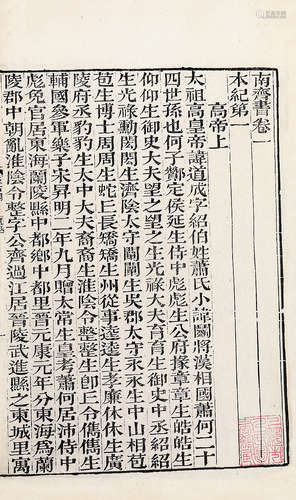 南齊書卷一
本紀第一
高帝上
太祖高皇帝諱道成字紹伯姓蕭氏小諱鬭將漢相國蕭何二十
四世孫也何子酇定侯延生侍中彪彪生公府掾章章生皓皓生
仰仰生御史大夫望之望之生光祿大夫育育生御史中丞紹紹
生光祿勳閎閎生濟陰太守闡闡生吳郡太守永永生中山相苞
苞生博士周周生蛇丘長矯矯生州從事逵逵生孝廉休休生廣
陵府丞豹豹生太中大夫裔裔生淮陰令整整生即丘令儁儁生
輔國參軍樂子宋昇明二年九月贈太常生皇考蕭何居沛侍中
彪免官居東海蘭陵縣中都鄉中都里晉元康元年分東海為蘭
陵郡中朝亂淮陰令整字公齊過江居晉陵武進縣之東城里寓